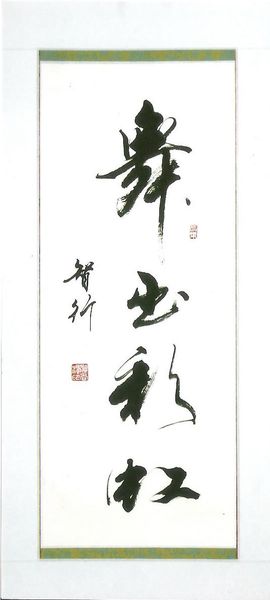 舞出彩虹
智行